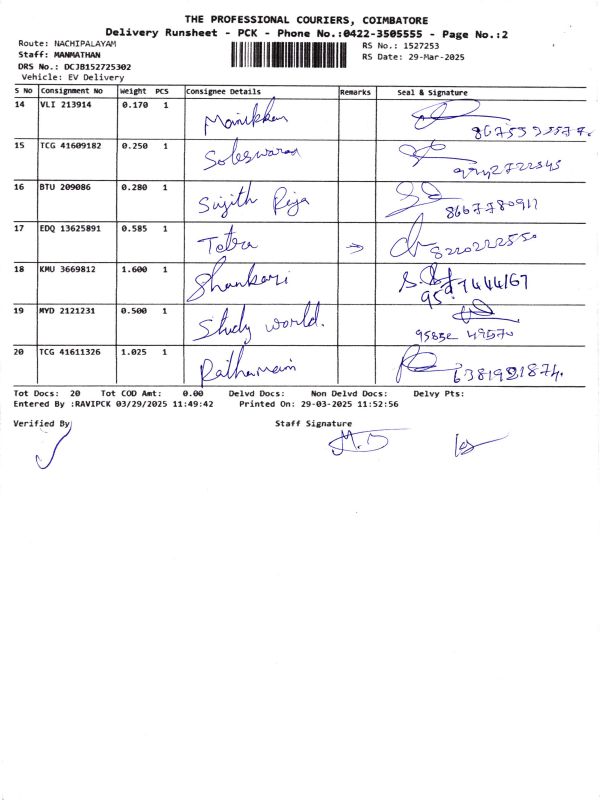 THE PROFESSIONAL COURIERS, COIMBATORE
Delivery Runsheet - PCK - Phone No.:0422-3505555 - Page No.:2
Route: NACHIPALAYAM
RS No.: 1527253
Staff: MANMATHAN
RS Date: 29-Mar-2025
DRS No.: DCJB152725302
Vehicle: EV Delivery
S No Consignment No Weight PCS Consignee Details Remarks Seal & Signature
14 VLI 213914 0.170 1 Manikkan
15 TCG 41609182 0.250 1
16 BTU 209086 0.280 1 Sujith Raja 8667780911
17 EDQ 13625891 0.585 1 Tetra → 8220222550
18 KMU 3669812 1.600 1 Shankari
19 MYD 2121231 0.500 1 Study world. 95852 49570
20 TCG 41611326 1.025 1 6381921874.
Tot Docs: 20 Tot COD Amt: 0.00 Delvd Docs: Non Delvd Docs: Delvy Pts:
Entered By :RAVIPCK 03/29/2025 11:49:42 Printed On: 29-03-2025 11:52:56
Verified By Staff Signature